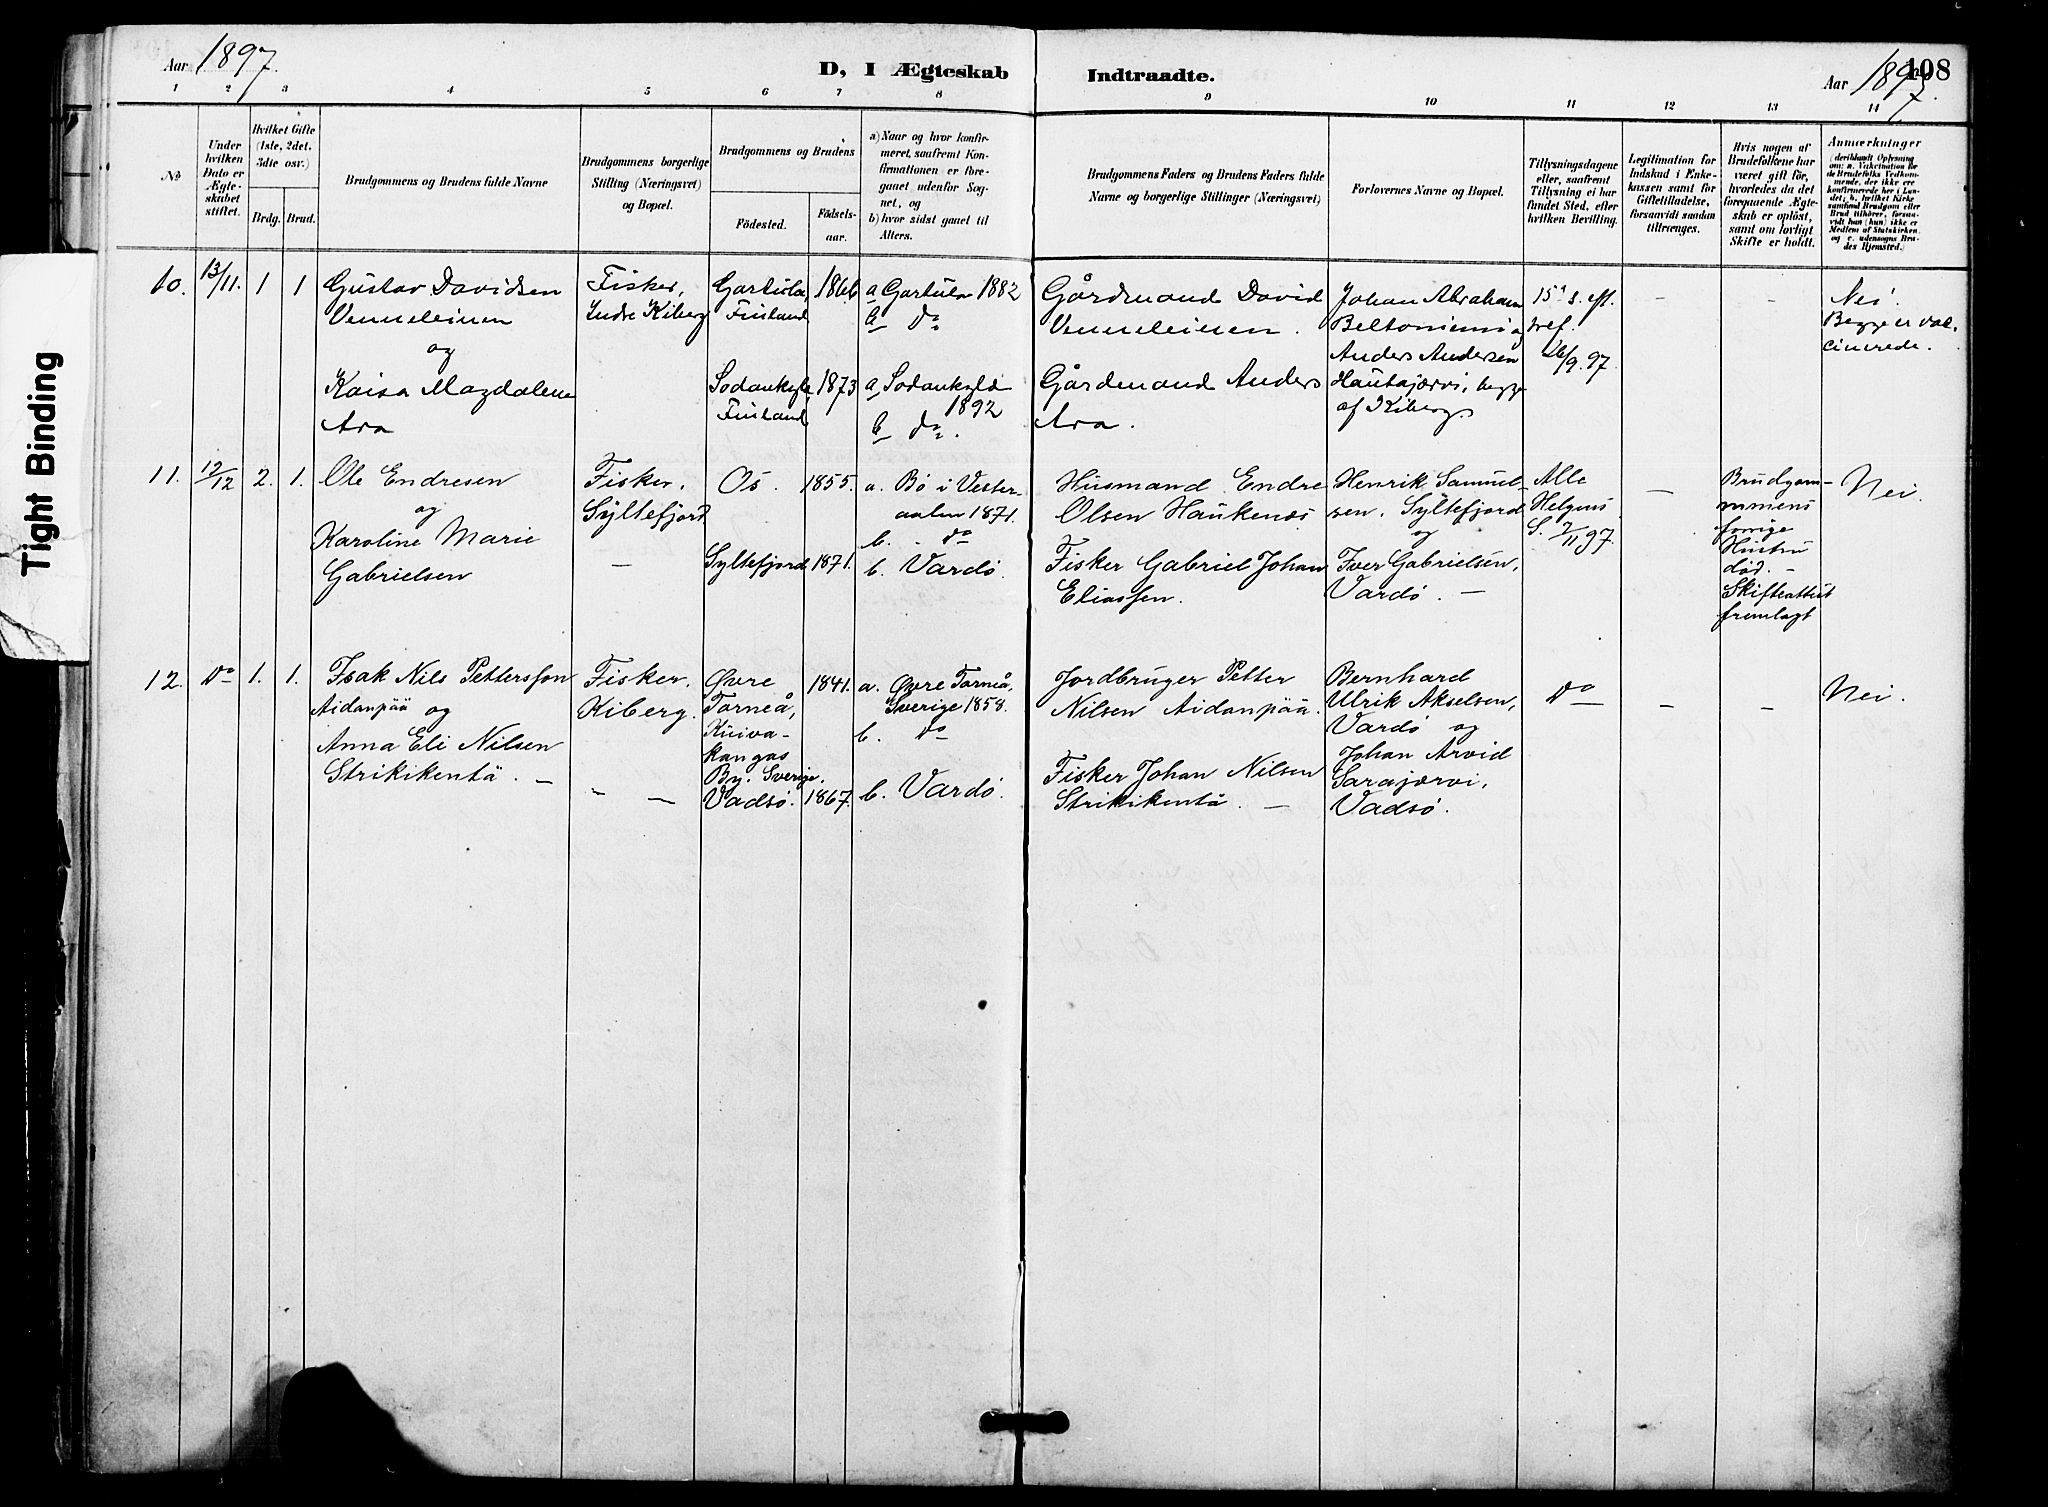 Aar 1897.
D, I Ægteskab
Indtraadte.
Aar 1897.
108
1 2 3 4 5 6 7 8 9 10 11 12 13 14
No
Under
hvilken
Dato er
Ægte-
skabet
stiftet.
Hvilket Gifte
(1ste, 2det,
3die osv.)
Brdg. Brud.
Brudgommens og Brudens fulde Navne
Brudgommens borgerlige
Stilling (Næringsvei)
og Bopæl.
Brudgommens og Brudens
Födested.
Födsels-
aar.
a) Naar og hvor konfir-
meret, saafremt Kon-
firmationen er fore-
gaaet udenfor Sog-
net, og
b) hvor sidst gaaet til
Alters.
Brudgommens Faders og Brudens Faders fulde
Navne og borgerlige Stillinger (Næringsvei)
Forlovernes Navne og Bopæl.
Tillysningsdagene
eller, saafremt
Tillysning ei har
fundet Sted, efter
hvilken Bevilling.
Legitimation for
Indskud i Enke-
kassen samt for
Giftetilladelse,
forsaavidt saadan
tiltrænges.
Hvis nogen af
Brudefolkene har
været gift för,
hvorledes da det
foregaaende Ægte-
skab er oplöst,
samt om lovligt
Skifte er holdt.
Anmærkninger
(deriblandt Oplysning
om: a. Vakcination for
de Brudefolks Vedkom-
mende, der ikke ere
konfirmerede her i Lan-
det; b. hvilket Kirke
samfund Brudgom eller
Brud tilhörer, forsaa-
vidt han (hun) ikke er
Medlem af Statskirken.
og c. udensogns Bru-
des Hjemsted.)
10. 13/11. 1 1
Gustav Davidsen
og
Kaisa Magdalena
Ara
Fisker,
Indre Kiberg
Finland
1866
Sodankyle
Finland
1873
a 1882
b do
a Sodankyle
1892
b do.
Gårdmand David
Gårdmand Anders
Ara.
Johan Abraham
Anders Andersen
Hautajærvi, begge
af Kiberg.
15d s. eft.
26/9. 97.
–
–
Nei.
Begge er vac-
cinerede.
11. 12/12 2. 1.
Ole Endresen
og
Karoline Marie
Gabrielsen
Fisker,
Syltefjord
–
Os. 1855.
Syltefjord 1871.
a. Bö i Vester-
aalen 1871.
b. – do
b. Vardö.
Husmand Endre
Olsen Haukenæs
Fisker Gabriel Johan
Eliassen.
Henrik Samuel-
sen, Syltefjord
og
Iver Gabrielsen,
Vardö. –
Alle
Helgens
S. 7/11 97.
–
Brudgom-
mmens
forrige
Hustru
död. –
Skifteattest
fremlagt
Nei.
12. do 1. 1.
Isak Nils Pettersson
Aidanpää og
Anna Eli Nilsen
Strikikentä. –
Fisker.
Kiberg.
– –
Övre
Torneå,
Kuiva-
kangas
By. Sverige.
1841.
Vadsö. 1867.
a. Övre Torneå,
Sverige 1858.
b. do
b. Vardö.
Jordbruger Petter
Nilsen Aidanpää.
Fisker Johan Nilsen
Strikikentä. –
Bernhard
Ulrik Akselsen,
Vardö og
Johan Arvid
Sarajærvi,
Vadsö.
do
–
–
Nei.
Tight Binding